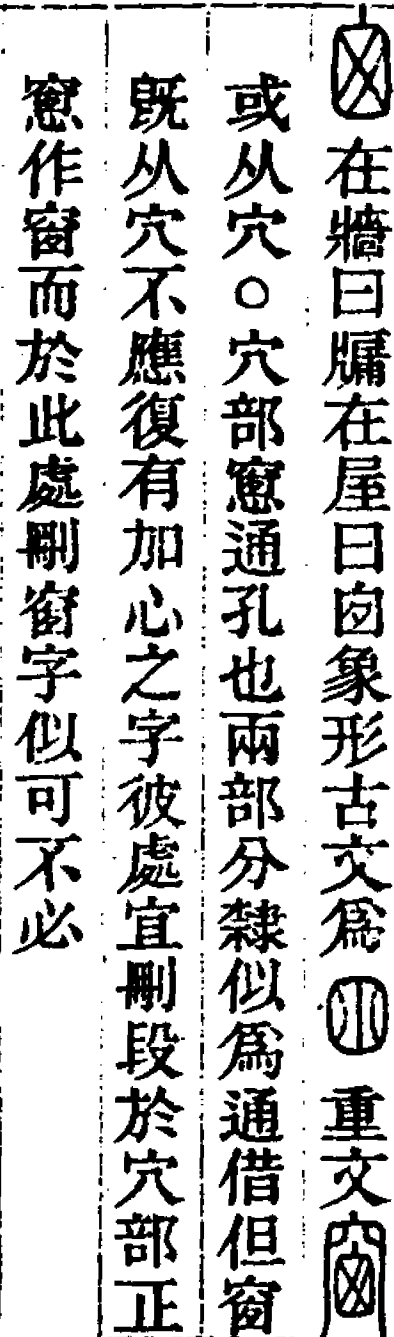 囪在牆曰牖在屋曰囪象形古文爲𡆧重文窗
或从穴○穴部窻通孔也兩部分隸似爲通借但窗
既从穴不應復有加心之字彼處宜刪段於穴部正
窻作窗而於此處刪窗字似可不必